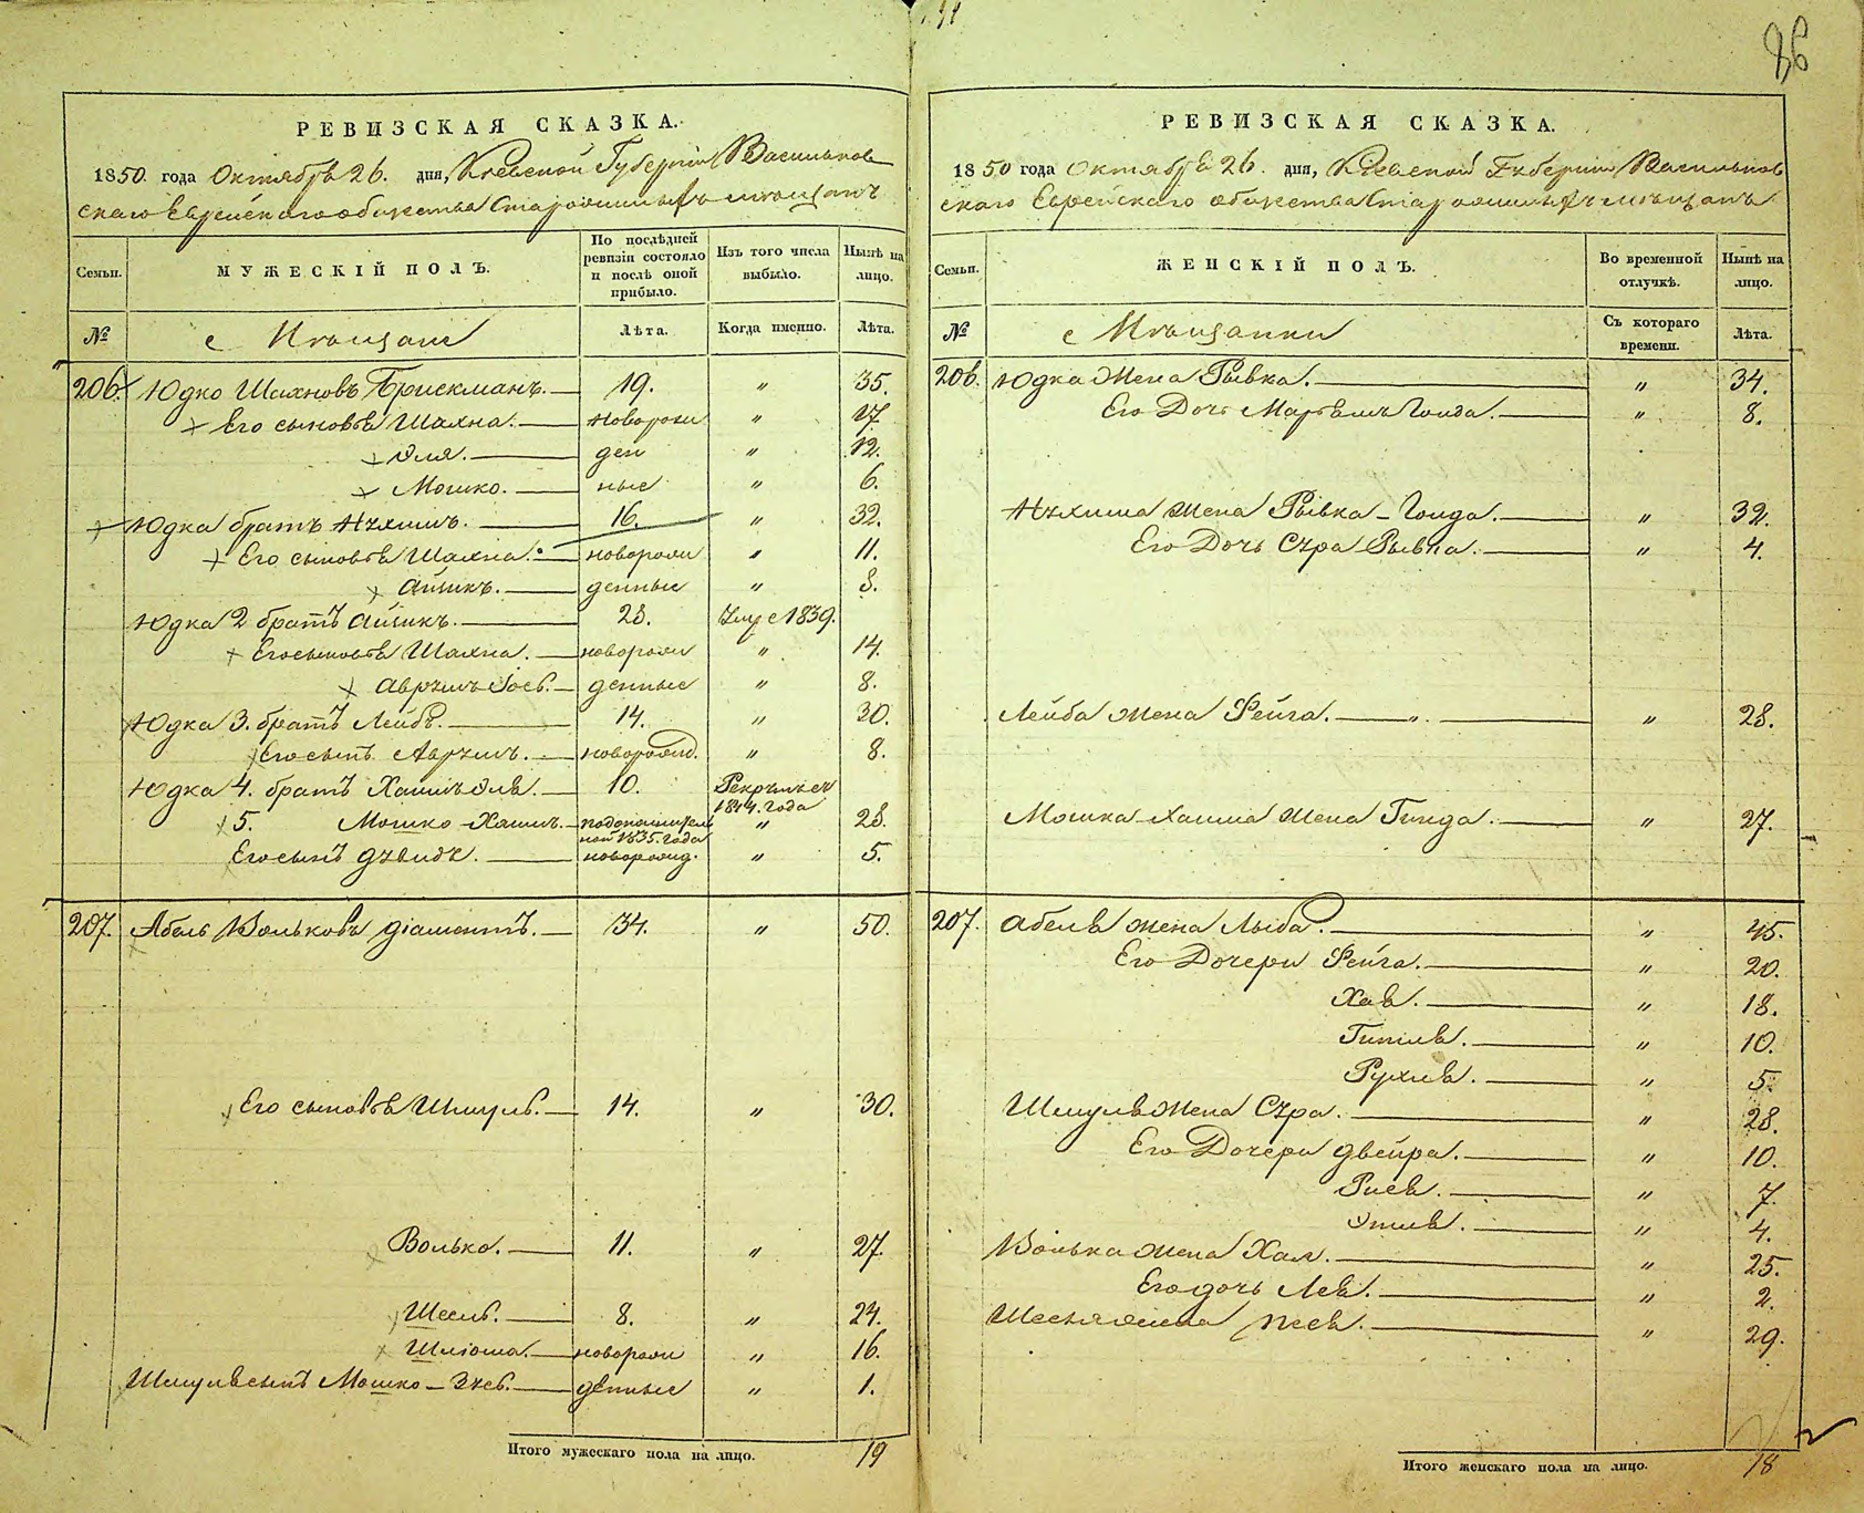 86
РЕВИЗСКАЯ СКАЗКА.
1850. года Октября 26. дня, Киевской Губернии Васильков
скаго Еврейскаго общества Старожилыхъ мещанъ
Семьи.
МУЖЕСКІЙ ПОЛЪ.
По послѣдней ревизіи состояло и послѣ оной прибыло.
Изъ того числа выбыло.
Нынѣ на лицо.
№
Мещане
Лѣта.
Когда именно.
Лѣта.
206. Юдко Шахновъ Брискманъ. 19. " 35.
Его сыновья Шахна. новорож " 17
Эля. ден " 12.
Мошко. ные " 6.
Юдка братъ Нухимъ. 16. " 32.
Его сыновья Шахна. новорож " 11.
Айзикъ. денные " 3.
Юдка 2 братъ Айзикъ. 23. Умре 1839.
Его сыновья Шахна. новорож " 14.
Аврумъ Іось. денные " 8.
Юдка 3. братъ Лейбъ. 14. " 30.
Его сынъ Аврумъ. новорожд. " 8.
Юдка 4. братъ Хаимъ Эля. 10. Рекрутъ съ
1844. года
5. Мошко-Хаимъ. " 28.
1835. года
Его сынъ Дувидъ. новорожд. " 5.
207. Абель Вольковъ Діамантъ. 34. " 50.
Его сыновья Шмуль. 14. " 30.
Волько. 11. " 27.
Шеель. 8. " 24.
Шліома. новорож " 16.
Шмуля сынъ Мошко-Зусь. денные " 1.
Итого мужескаго пола на лицо. 19
РЕВИЗСКАЯ СКАЗКА.
1850 года Октября 26. дня, Кіевской Губерніи Васильков
скаго Еврейскаго общества Старожилыхъ мѣщанъ
Семьи.
ЖЕНСКІЙ ПОЛЪ.
Во временной отлучкѣ.
Нынѣ на лицо.
№
Мещанки
Съ котораго времени.
Лѣта.
206. Юдка Жена Рывка. " 34.
Его Дочь Марьямъ Гинда. " 8.
Нухима жена Рывка-Гинда. " 32.
Его Дочь Сура Рывка. " 4.
Лейба жена Фейга. " 28.
Мошка-Хаима жена Гинда. " 27.
207. Абеля жена Лыба. " 45.
Его Дочери Фейга. " 20.
Хая. " 18.
Гитля. " 10.
Рухля. " 5.
Шмуля Жена Сура. " 28.
Его Дочери Двейра. " 10.
Рися. " 7.
Этля. " 4.
Волька жена Хая. " 25.
Его дочь Лея. " 2.
Шееля жена Песя. " 29.
Итого женскаго пола на лицо. 18